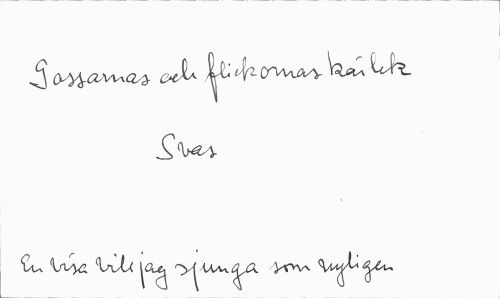 Gossarnas och flickornas kärlek
Svas
En visa vill jag sjunga som nyligen